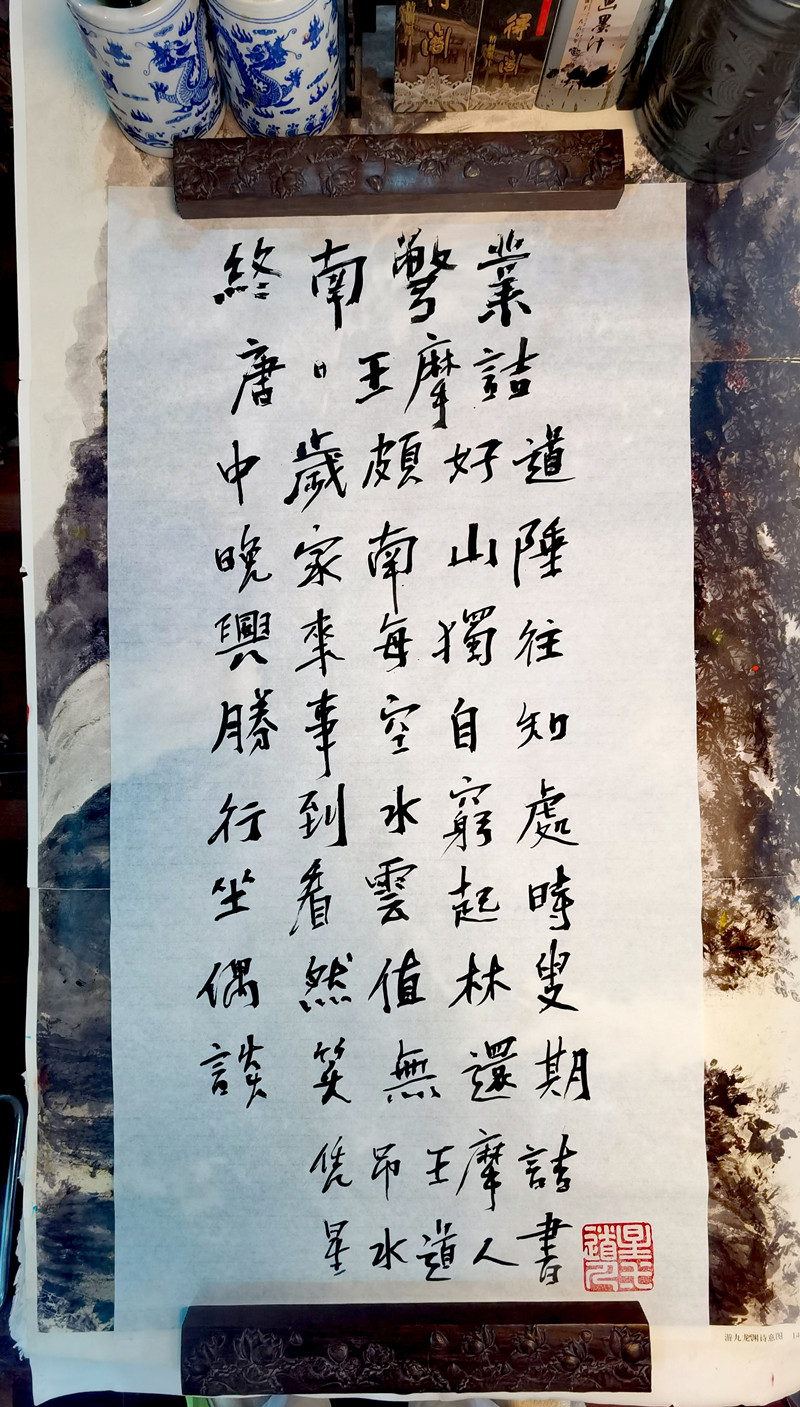 閣
得閣
墨汁
終南彆業
唐·王摩詰
中歲頗好道
晚家南山陲
興來每獨往
勝事空自知
行到水窮處
坐看雲起時
偶然值林叟
談笑無還期
凭吊王摩詰
星水道人書
星水道人